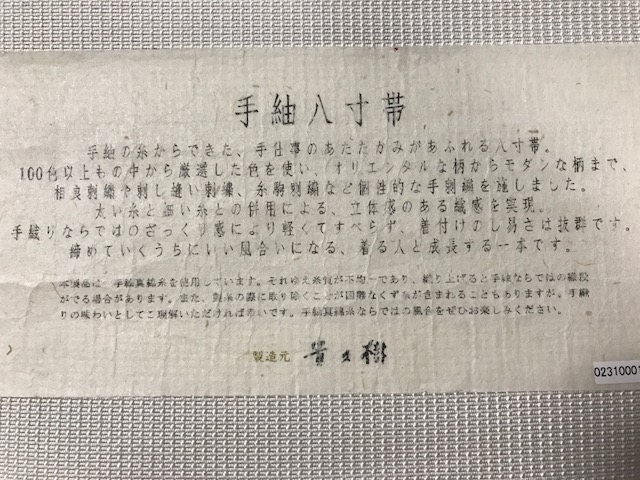 手紬八寸帯
手紬の糸からできた、手仕事のあたたかみがあふれる八寸帯。
100色以上もの中から厳選した色を使い、オリエンタルな柄からモダンな柄まで、
相良刺繍や刺し縫い刺繍、糸駒刺繍など個性的な手刺繍を施しました。
太い糸と細い糸との併用による、立体感のある織感を実現。
手織りならではのざっくり感により軽くてすべらず、着付けのし易さは抜群です。
締めていくうちにいい風合いになる、着る人と成長する一本です。
本製品は、手紬真綿糸を使用しています。それゆえ糸質が不均一であり、織り上げると手織ならではの織段
がでる場合があります。また、製糸の際に取り除くことが困難なくず糸が含まれることもありますが、手織
りの味わいとしてご理解いただければ幸いです。手紬真綿糸ならではの風合をぜひお楽しみください。
製造元 貴久樹
02310001